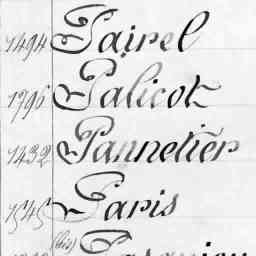 1494 Pairel
1796 Palicot
1432 Pannetier
1545 Paris
(bis)